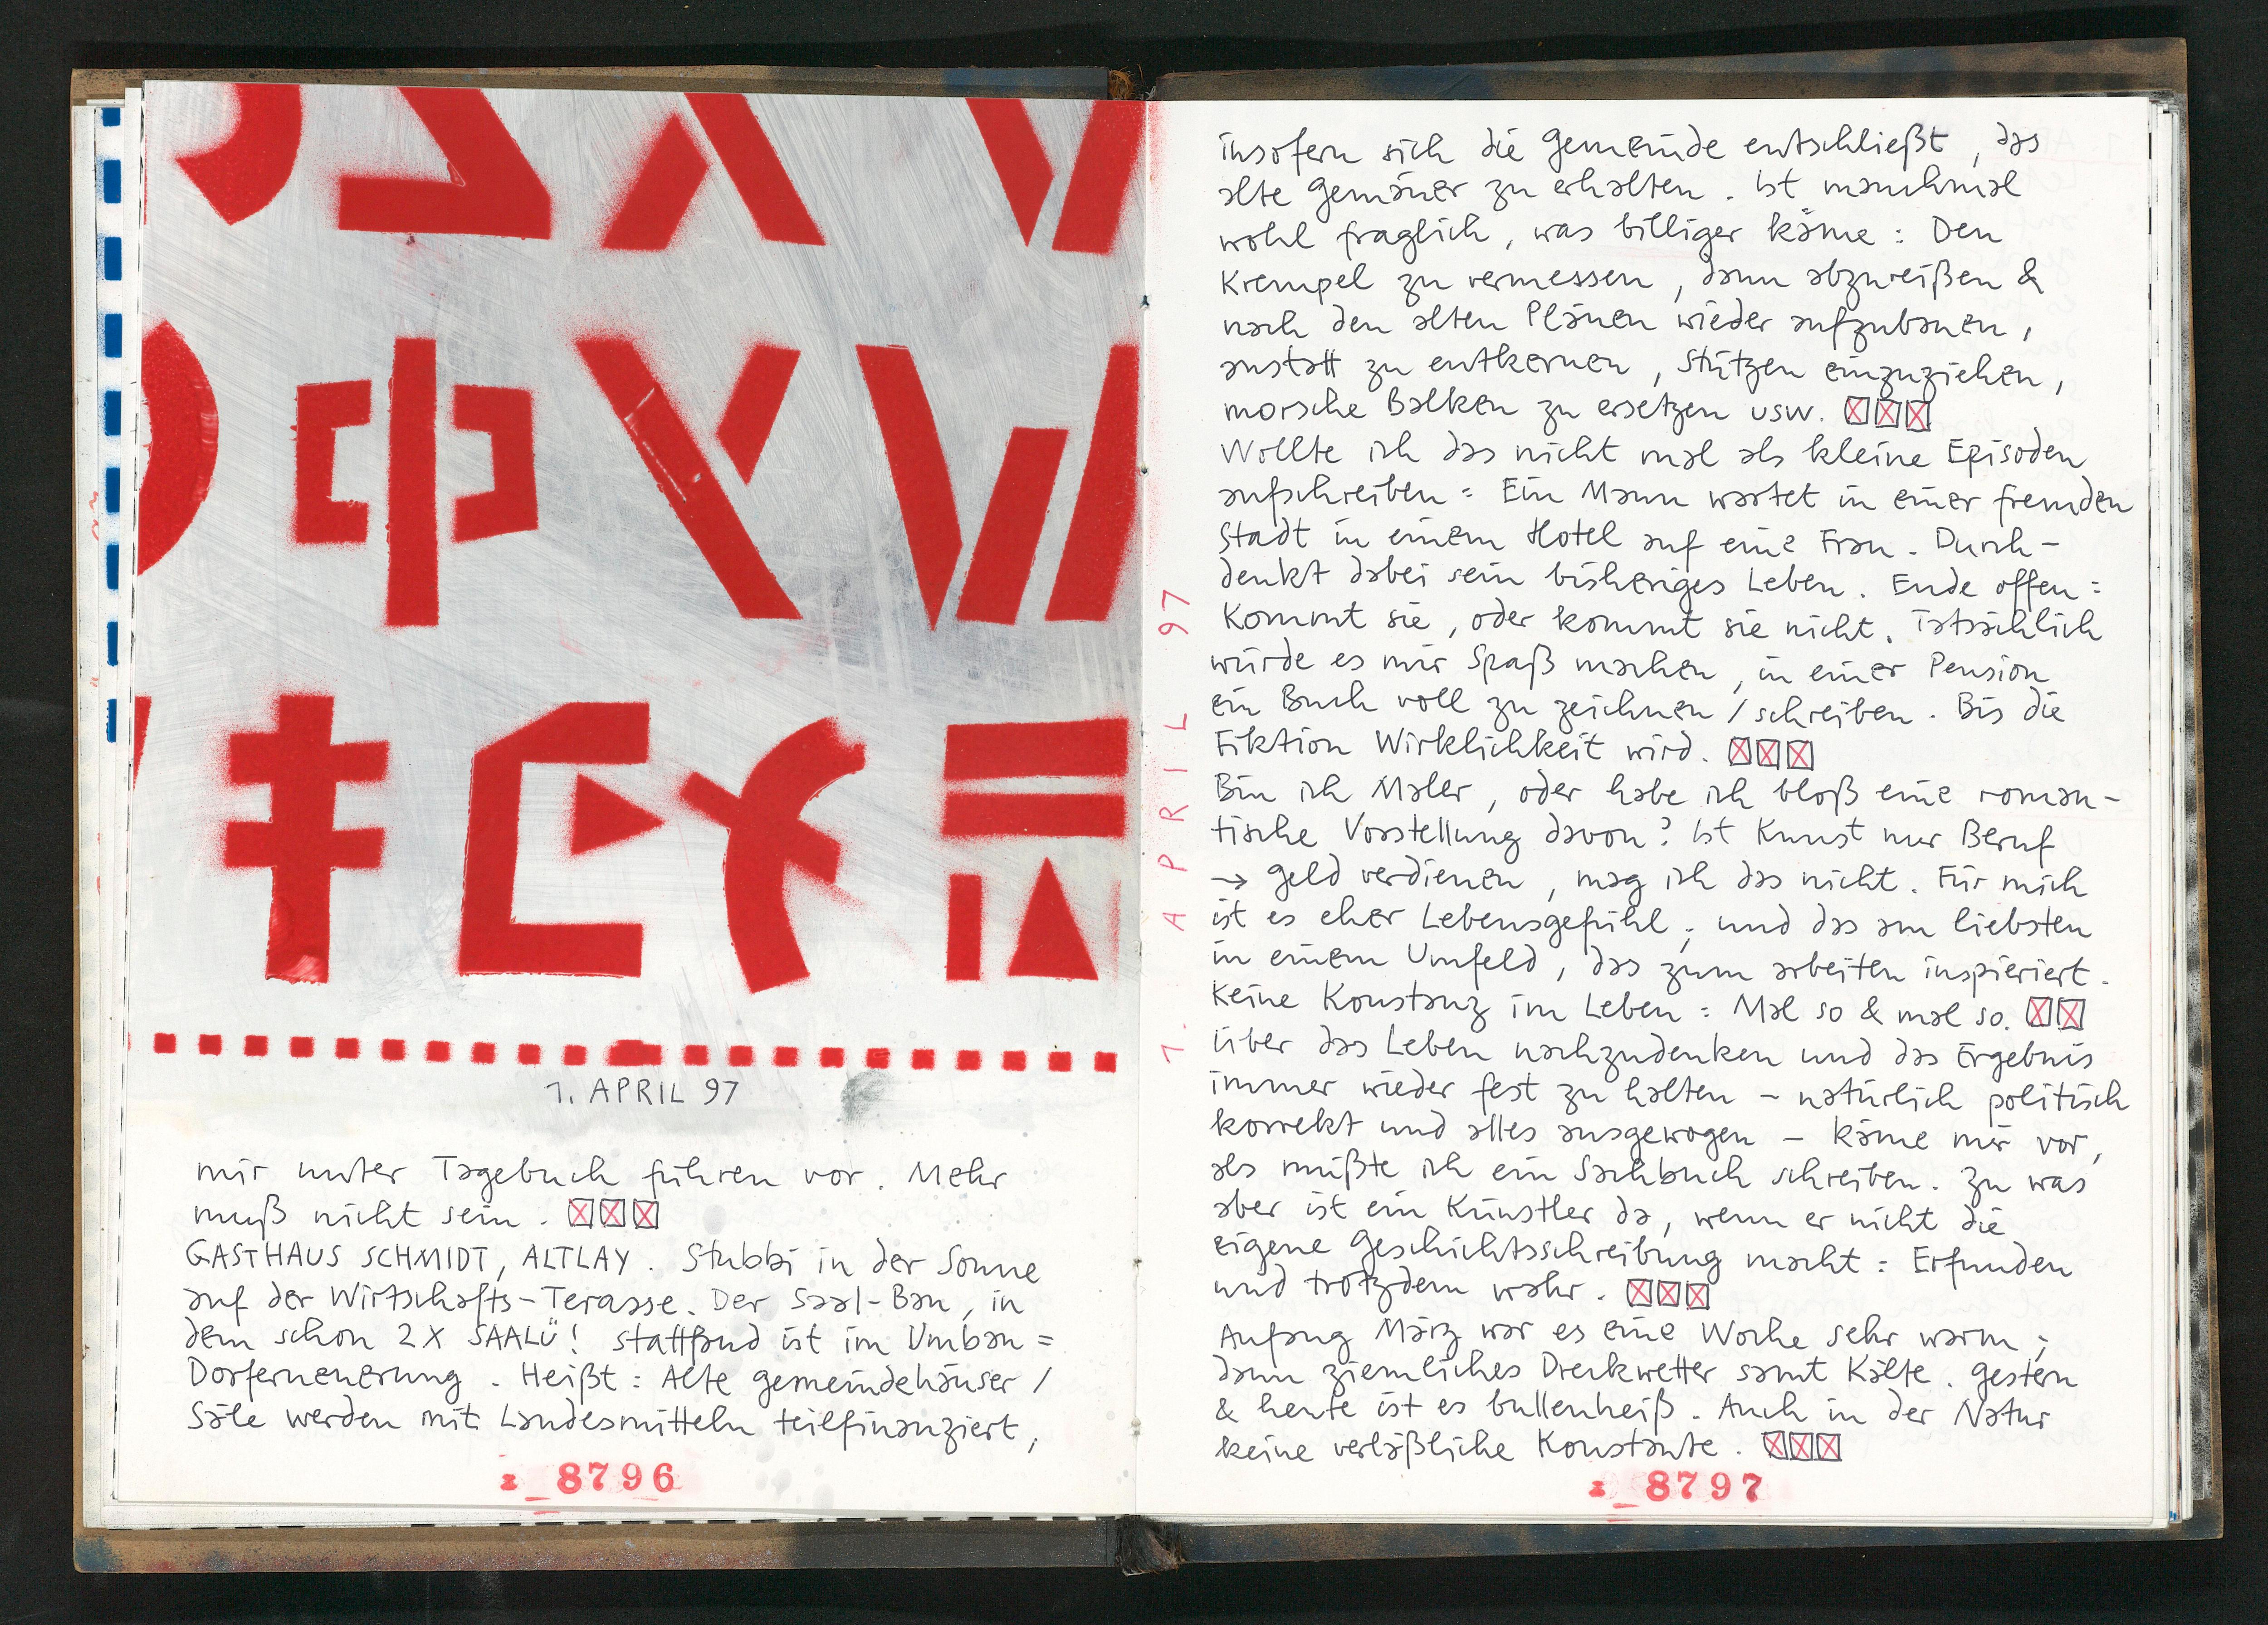 1. APRIL 97
mir unter Tagebuch führen vor. Mehr
muß nicht sein.
GASTHAUS SCHMIDT, ALTLAY. Stubbi in der Sonne
auf der Wirtschafts-Terasse. Der Saal-Bau, in
dem schon 2X SAALÜ! stattfand ist im Umbau =
Dorferneuerung. Heißt: Alte Gemeindehäuser /
Säle werden mit Landesmitteln teilfinanziert,
8796
1. APRIL 97
insofern sich die Gemeinde entschließt, das
alte Gemäuer zu erhalten. Ist manchmal
wohl fraglich, was billiger käme: Den
Krempel zu vermessen, dann abzureißen &
nach den alten Plänen wieder aufzubauen,
anstatt zu entkernen, Stützen einzuziehen,
morsche Balken zu ersetzen usw.
Wollte ich das nicht mal als kleine Episoden
aufschreiben: Ein Mann wartet in einer fremden
Stadt in einem Hotel auf eine Frau. Durch-
denkt dabei sein bisheriges Leben. Ende offen:
Kommt sie, oder kommt sie nicht. Tatsächlich
würde es mir Spaß machen, in einer Pension
ein Buch voll zu zeichnen / schreiben. Bis die
Fiktion Wirklichkeit wird.
Bin ich Maler, oder habe ich bloß eine roman-
tische Vorstellung davon? Ist Kunst nur Beruf
→ Geld verdienen, mag ich das nicht. Für mich
ist es eher Lebensgefühl; und das am liebsten
in einem Umfeld, das zum arbeiten inspieriert.
Keine Konstanz im Leben: Mal so & mal so.
Über das Leben nachzudenken und das Ergebnis
immer wieder fest zu halten – natürlich politisch
korrekt und alles ausgewogen – käme mir vor,
als müßte ich ein Sachbuch schreiben. Zu was
aber ist ein Künstler da, wenn er nicht die
eigene Geschichtsschreibung macht: Erfunden
und trotzdem wahr.
Anfang März war es eine Woche sehr warm;
dann ziemliches Dreckwetter samt Kälte. Gestern
& heute ist es bullenheiß. Auch in der Natur
keine verläßliche Konstante.
8797